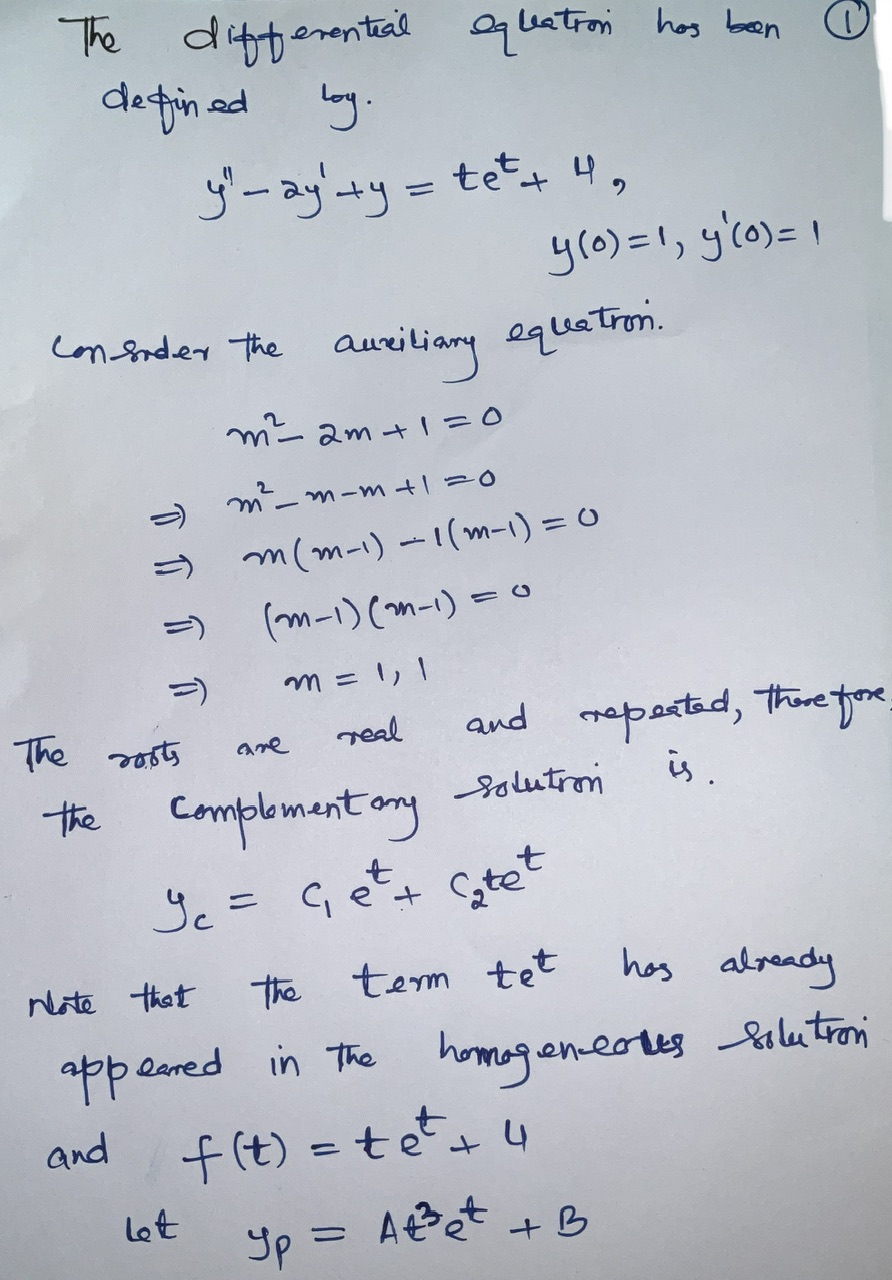 The differential equation has been ①
defined by.
y'' - 2y' + y = te^t + 4,
y(0) = 1, y'(0) = 1
Consider the auxiliary equation.
m² - 2m + 1 = 0
⇒ m² - m - m + 1 = 0
⇒ m(m-1) - 1(m-1) = 0
⇒ (m-1)(m-1) = 0
⇒ m = 1, 1
The roots are real and repeated, therefore,
the complementary solution is.
y_c = c₁e^t + c₂te^t
Note that the term te^t has already
appeared in the homogeneous solution
and f(t) = te^t + 4
let y_p = At³e^t + B